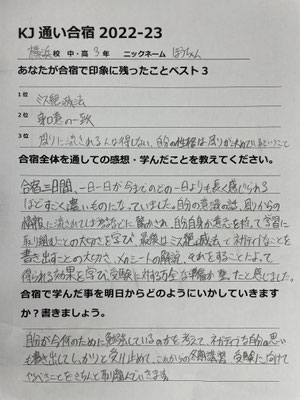 KJ 通い合宿 2022-23
横浜校 中・高 3年 ニックネーム ぽうちゃん
あなたが合宿で印象に残ったことベスト3
1位 ミス絶滅法
2位 身口意の一致
3位 周りに流される人は得しない、自分の性格は周りが決めているということ
合宿全体を通しての感想・学んだことを教えてください。
合宿三日間、一日一日が今までのどの一日よりも長く感じられる
ほどすごく濃いものになっていました。自分の意識の話、周りからの
情報に流されてしまう話などに驚かされ、自分自身が意志を持って学習に
取り組むことの大切さを学び、最後はミス絶滅法でネガティブなことを
書き出すことの大切さ、メのシートの解説、それをすることよって
得られる効果を学び、受験に対する万全な準備が整ったと感じました。
合宿で学んだ事を明日からどのようにいかしていきます
か？書きましょう。
自分が今何のために勉強しているのかを考えて、ネガティブな自分の思い
も書き出してしっかりと受け止めて、これからの冬期講習、受験に向けて
やるべきことをきちんと取り組んでいきます。